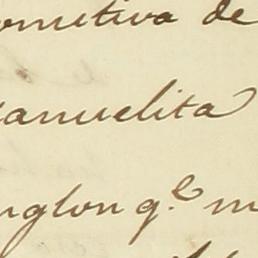 omitiva de
anuelita
nglon q.e m